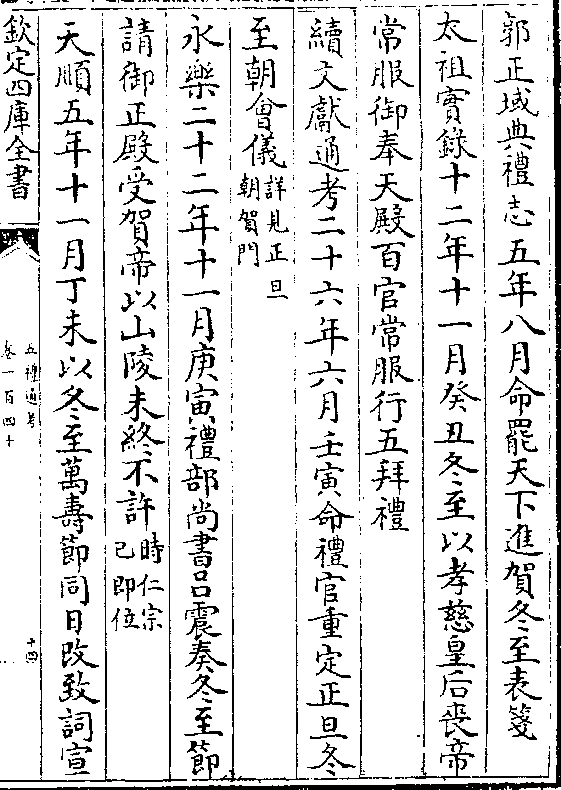 郭正域典禮志五年八月命罷天下進賀冬至表箋
太祖實錄十二年十一月癸丑冬至以孝慈皇后喪帝
常服御奉天殿百官常服行五拜禮
續文獻通考二十六年六月壬寅命禮官重定正旦冬
至朝會儀詳見正旦朝賀門
永樂二十二年十一月庚寅禮部尚書吕震奏冬至節
請御正殿受賀帝以山陵未終不許時仁宗已即位
天順五年十一月丁未以冬至萬壽節同日改致詞宣
欽定四庫全書
五禮通考
卷一百四十
十四